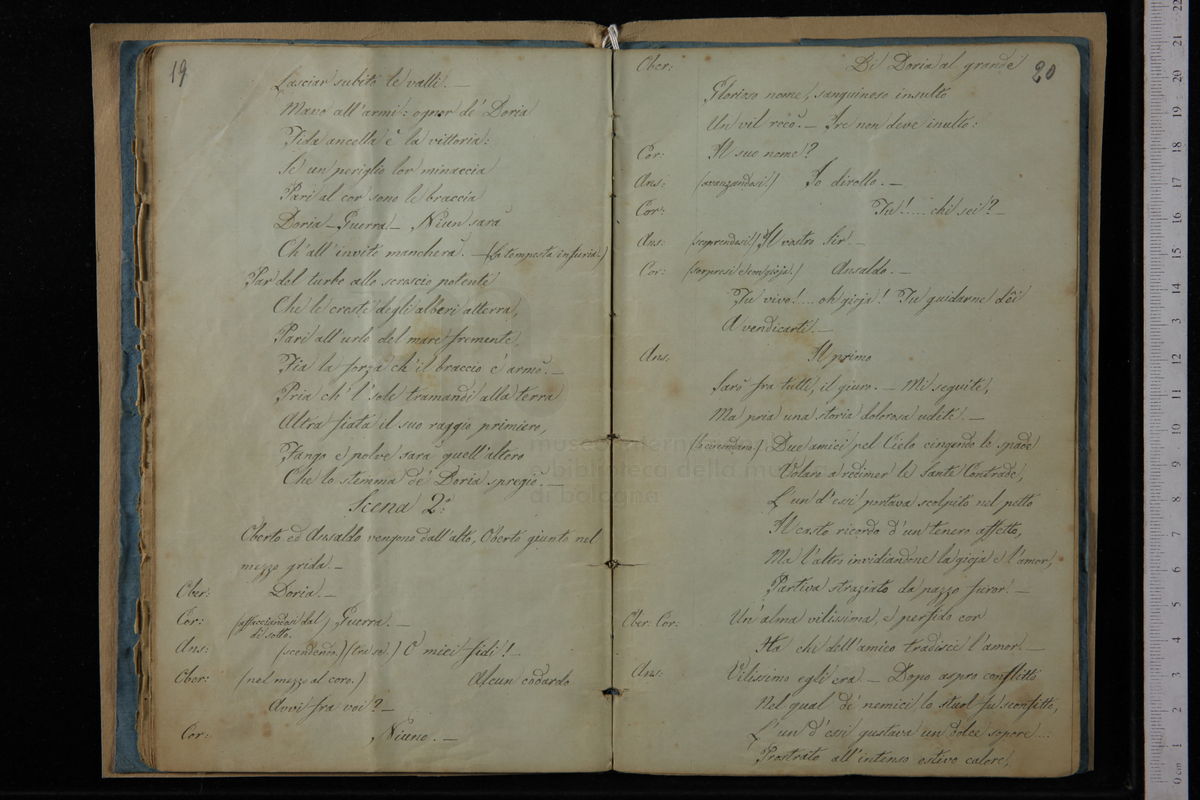 19
Lasciar subito le valli. —
Mano all'armi: ognor de' Doria
Fida ancella è la vittoria:
Se un periglio lor minaccia
Pari al cor sono le braccia
Doria — Guerra — Niun sarà
Ch'all'invito mancherà. — (la tempesta infuria.)
Par del turbo allo scroscio potente
Che le creste degli alberi atterra,
Pari all'urlo del mare fremente,
Fia la forza ch'il braccio è armò. —
Pria ch'l sole tramandi alla terra
Altra fiata il suo raggio primiero,
Fango e polve sarà quell'altero
Che lo stemma de' Doria spregiò. —
Scena 2:
Oberto ed Ansaldo vengono dall'alto, Oberto giunto nel
mezzo grida. —
Ober: Doria. —
Cor: (affacciandosi dal di sotto.) Guerra. —
Ans: (scendendo) (tra se.) O miei fidi! —
Ober: (nel mezzo al coro.) Alcun codardo
Avvi fra voi? —
Cor: Niuno. —
20
Ober: Di Doria al grande
Glorioso nome, sanguinoso insulto
Un vil recò. — Ire non deve inulto:
Cor: Il suo nome?
Ans: (avanzandosi.) Io dirollo. —
Cor: Tu!.... chi sei? —
Ans: (scoprendosi.) Il vostro Sir —
Cor: (sorpresi e con gioja.) Ansaldo. —
Tu vivo!.... oh gioja! Tu guidarne dèi
A vendicarti. —
Ans. Il primo
Sarò fra tutti, il giuro. — Mi seguite,
Ma pria una storia dolorosa udite. —
(lo circondano.) Due amici pel Cielo cingendo le spade
Volaro a redimer le Sante Contrade,
L'un d'essi portava scolpito nel petto
Il casto ricordo d'un tenero affetto,
Ma l'altro invidiandone la gioja e l'amor,
Partiva straziato da pazzo furor. —
Ober: Cor: Un'alma vilissima, e perfido cor
Ha chi dell'amico tradisce l'amor. —
Ans: Vilissimo egli era. — Dopo aspro conflitto
Nel qual di nemici lo stuol fu sconfitto,
L'un d'essi gustava un dolce sopore...
Prostrato all'intenso estivo calore,
museo internazionale
e biblioteca della musica
di bologna